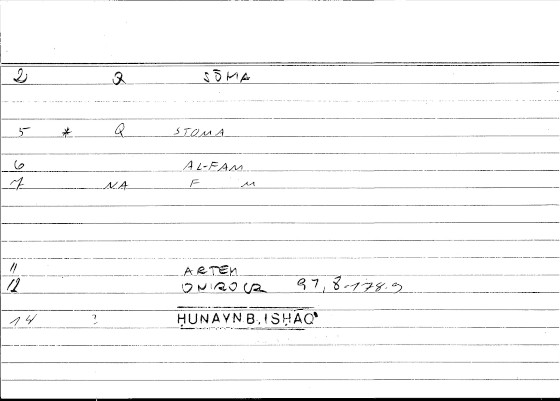 2 Q SŌMA
5 * Q STOMA
6 AL-FAM
7 NA F M
11 ARTEM
12 ONIROCR 97,8-178.9
14 : ḤUNAYN B. ISḤĀQ